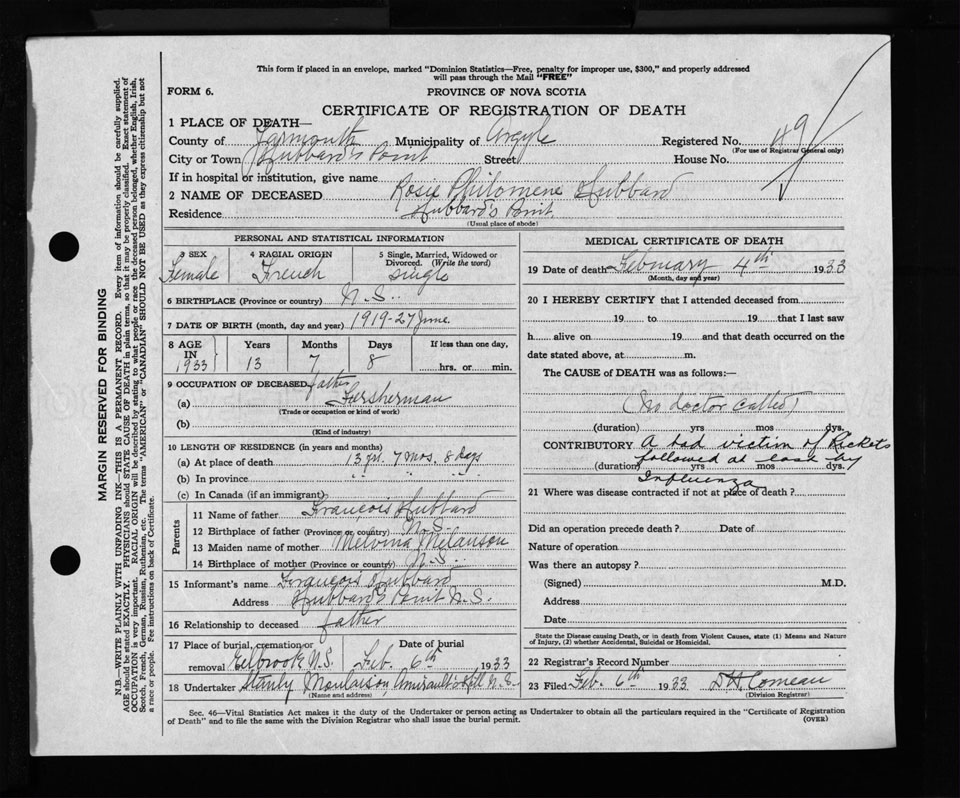 This form if placed in an envelope, marked "Dominion Statistics—Free, penalty for improper use, $300," and properly addressed
will pass through the Mail "FREE"
FORM 6.
PROVINCE OF NOVA SCOTIA
CERTIFICATE OF REGISTRATION OF DEATH
1 PLACE OF DEATH—
County of Yarmouth Municipality of Argyle Registered No. 49
(For use of Registrar General only)
City or Town Hubbard's Point Street House No.
If in hospital or institution, give name
2 NAME OF DECEASED Rosie Philomene Hubbard
Residence Hubbard's Point
(Usual place of abode)
PERSONAL AND STATISTICAL INFORMATION
3 SEX Female
4 RACIAL ORIGIN French
5 Single, Married, Widowed or Divorced. (Write the word) single
6 BIRTHPLACE (Province or country) N.S.
7 DATE OF BIRTH (month, day and year) 1919-27 June
8 AGE IN 1933
Years 13
Months 7
Days 8
If less than one day,
hrs. or min.
9 OCCUPATION OF DECEASED father
(a) Fersherman
(Trade or occupation or kind of work)
(b)
(Kind of industry)
10 LENGTH OF RESIDENCE (in years and months)
(a) At place of death 13 yr. 7 mos. 8 days
(b) In province " " "
(c) In Canada (if an immigrant)
Parents
11 Name of father François Hubbard
12 Birthplace of father (Province or country) N.S.
13 Maiden name of mother Melvina Melanson
14 Birthplace of mother (Province or country) N.S.
15 Informant's name François Hubbard
Address Hubbard's Point N.S.
16 Relationship to deceased father
17 Place of burial, cremation or
removal Eelbrook N.S.
Date of burial
Feb. 6th 1933
18 Undertaker Stanly Moulaison, Amirault's Hill N.S.
(Name and address)
MEDICAL CERTIFICATE OF DEATH
19 Date of death February 4th 1933
(Month, day and year)
20 I HEREBY CERTIFY that I attended deceased from
19 to 19 that I last saw
h alive on 19 and that death occurred on the
date stated above, at m.
The CAUSE of DEATH was as follows:—
(No doctor called)
(duration) yrs mos dys.
CONTRIBUTORY A bad victim of Rickets
followed at last by
(duration) yrs mos dys.
Influenza
21 Where was disease contracted if not at place of death?
Did an operation precede death? Date of
Nature of operation
Was there an autopsy?
(Signed) M.D.
Address
Date
State the Disease causing Death, or in death from Violent Causes, state (1) Means and Nature
of Injury, (2) whether Accidental, Suicidal or Homicidal.
22 Registrar's Record Number
23 Filed Feb. 6th 1933 Comeau
(Division Registrar)
Sec. 46—Vital Statistics Act makes it the duty of the Undertaker or person acting as Undertaker to obtain all the particulars required in the "Certificate of Registration
of Death" and to file the same with the Division Registrar who shall issue the burial permit.
(OVER)
MARGIN RESERVED FOR BINDING
N.B.—WRITE PLAINLY WITH UNFADING INK—THIS IS A PERMANENT RECORD. Every item of information should be carefully supplied.
AGE should be stated EXACTLY. PHYSICIANS should STATE CAUSE OF DEATH in plain terms, so that it may be properly classified. Exact statement of
OCCUPATION is very important. RACIAL ORIGIN will be described by stating to what people or race the deceased person belonged, whether English, Irish,
Scotch, French, German, Russian, Ruthenian, etc. The terms "AMERICAN" or "CANADIAN" SHOULD NOT BE USED as they express citizenship but not
a race or people. See instructions on back of Certificate.